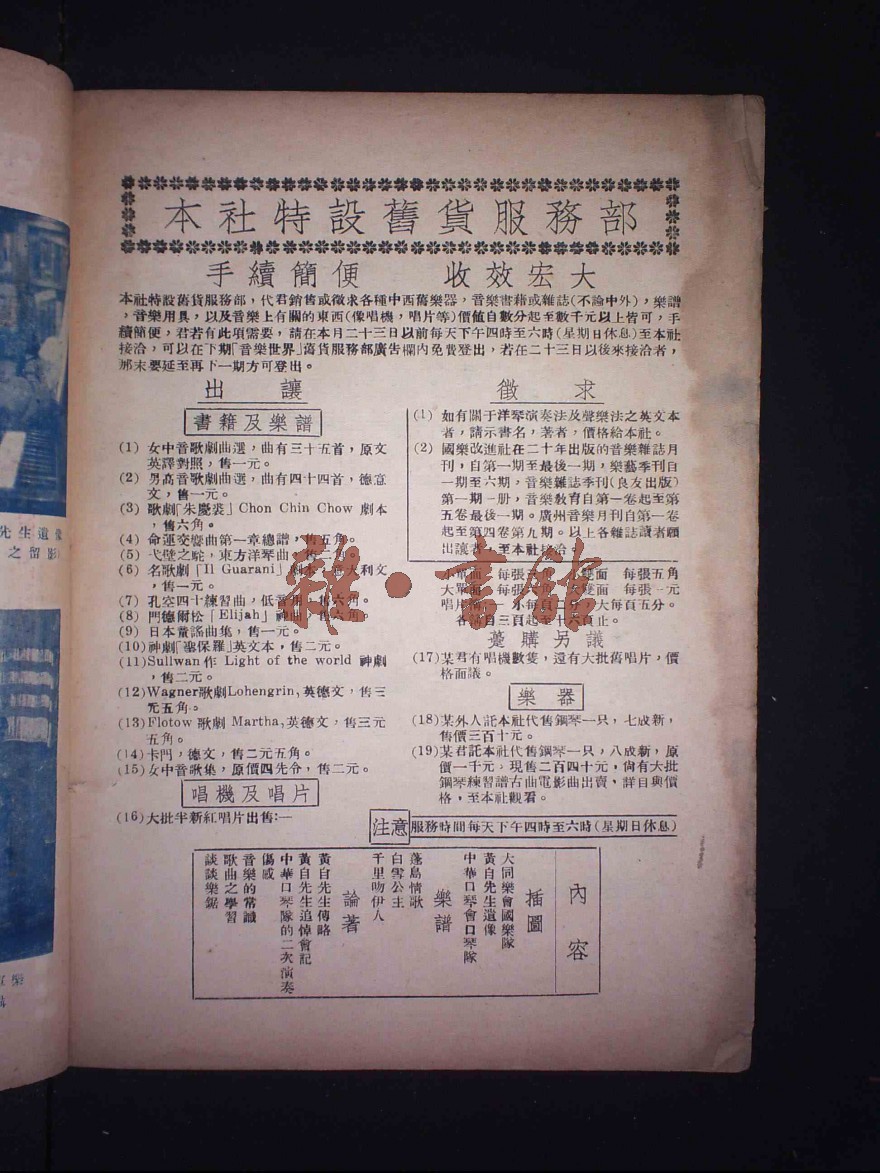 本社特設舊貨服務部
手續簡便 收效宏大
本社特設舊貨服務部,代君銷售或徵求各種中西舊樂器,音樂書藉或雜誌(不論中外),樂譜
,音樂用具,以及音樂上有關的東西(像唱機,唱片等)價值自數分起至數千元以上皆可,手
續簡便,君若有此項需要,請在本月二十三日以前每天下午四時至六時(星期日休息)至本社
接洽,可以在下期「音樂世界」舊貨服務部廣告欄內免費登出,若在二十三日以後來接洽者,
那末要延至再下一期方可登出。
出讓
書籍及樂譜
(1) 女中音歌劇曲選,曲有三十五首,原文
英譯對照,售一元。
(2) 男高音歌劇曲選,曲有四十四首,德意
文,售一元。
(3) 歌劇「朱慶裘」Chon Chin Chow 劇本
,售六角。
(4) 命運交響曲第一章總譜,售五角。
(5) 弋壁之駝,東方洋琴曲,售二角。
(6) 名歌劇「Il Guarani」劇本,意大利文
,售一元。
(7) 孔空四十練習曲,低音用,售六角。
(8) 門德爾松「Elijah」神曲,售六角。
(9) 日本童謠曲集,售一元。
(10)神劇「聖保羅」英文本,售二元。
(11)Sullwan作 Light of the world 神劇
,售二元。
(12)Wagner歌劇Lohengrin,英德文,售三
元五角。
(13)Flotow 歌劇 Martha,英德文,售三元
五角。
(14)卡門,德文,售二元五角。
(15)女中音歌集,原價四先令,售二元。
唱機及唱片
(16)大批半新紅唱片出售:—
徵求
(1) 如有關于洋琴演奏法及聲樂法之英文本
者,請示書名,著者,價格給本社。
(2) 國樂改進社在二十年出版的音樂雜誌月
刊,自第一期至最後一期,樂藝季刊自
一期至六期,音樂雜誌季刊(良友出版)
第一期一册,音樂教育自第一卷起至第
五卷最後一期。廣州音樂月刊自第一卷
起至第四卷第九期。以上各雜誌讀者願
出讓者,至本社接洽。
小單面 每張三角 小雙面 每張五角
大單面 每張六角 大雙面 每張一元
唱片 小每頁二分,大每頁五分。
各 自三頁起至十六頁止。
躉購另議
(17)某君有唱機數隻,還有大批舊唱片,價
格面議。
樂器
(18)某外人託本社代售鋼琴一只,七成新,
售價三百十元。
(19)某君託本社代售鋼琴一只,八成新,原
價一千元,現售二百四十元,尙有大批
鋼琴練習譜古曲電影曲出賣,詳目與價
格,至本社觀看。
注意 服務時間每天下午四時至六時(星期日休息)
內容
插圖
大同樂會國樂隊
黃自先生遺像
中華口琴會口琴隊
樂譜
蓬島情歌
白雪公主
千里吻伊人
論著
黃自先生傳略
黃自先生追悼會記
中華口琴隊的二次演奏
傷感
音樂的常識
歌曲之學習
談談樂鋸
先生遺像
之留影
雜·書館